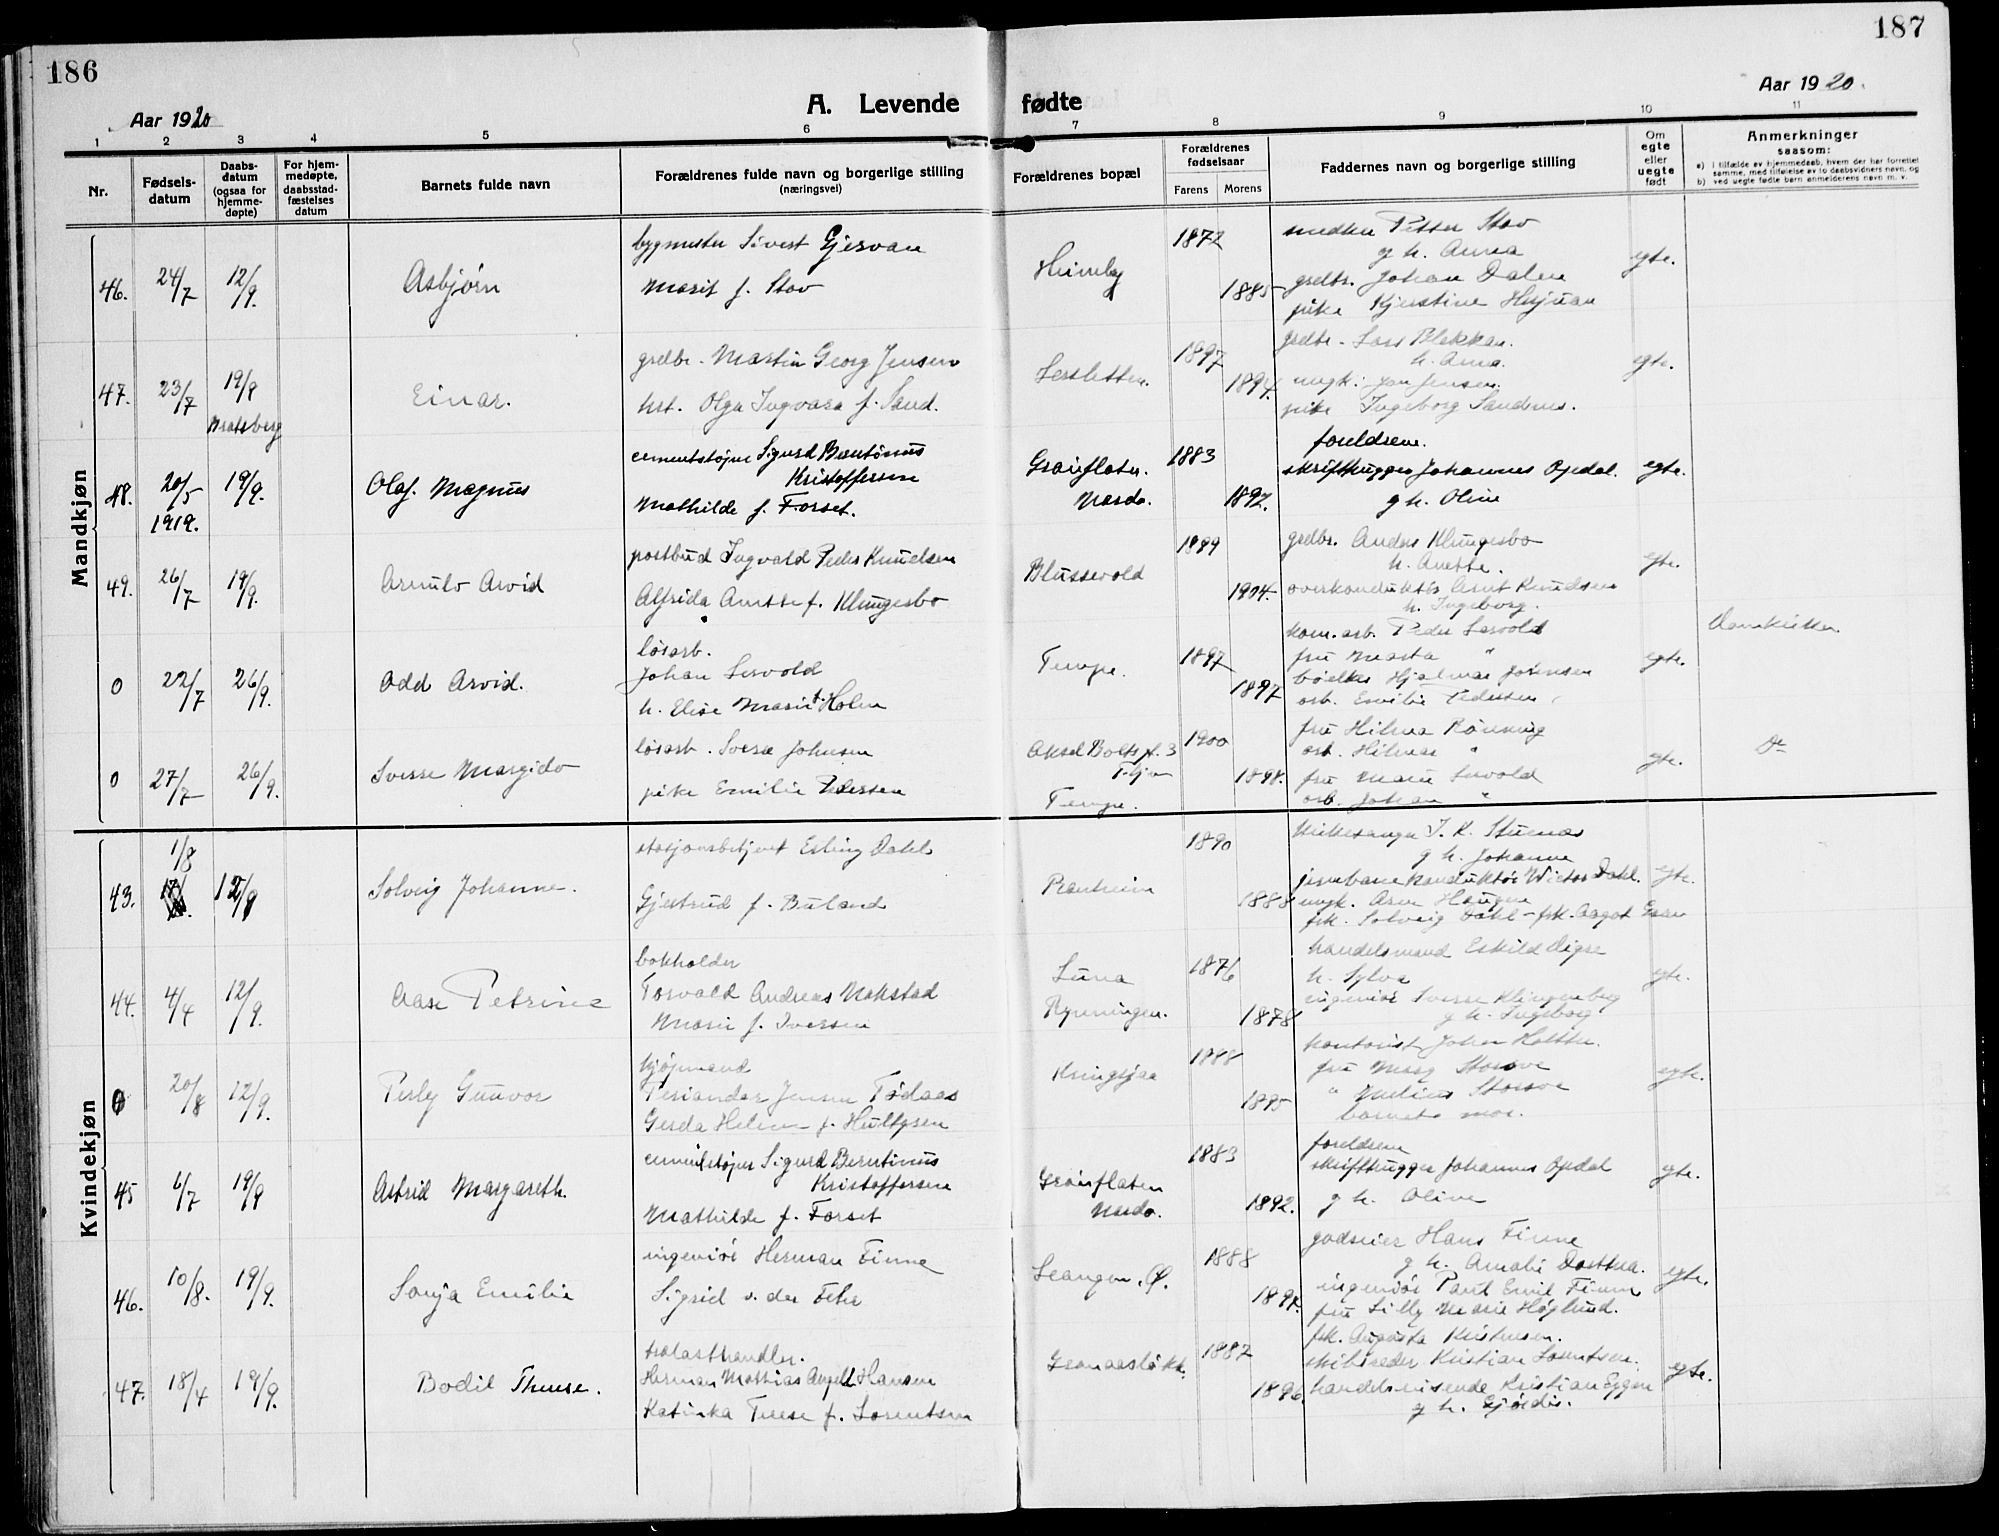 186
187
Aar 1920
A. Levende fødte
Aar 1920.
1 2 3 4 5 6 7 8 9 10 11
Nr.
Fødsels-
datum
Daabs-
datum
(ogsaa for
hjemme-
døpte)
For hjem-
medøpte,
daabsstad-
fæstelses
datum
Barnets fulde navn
Forældrenes fulde navn og borgerlige stilling
(næringsvei)
Forældrenes bopæl
Forældrenes
fødselsaar
Farens Morens
Faddernes navn og borgerlige stilling
Om
egte
eller
uegte
født
Anmerkninger
saasom:
a) i tilfælde av hjemmedaab, hvem der har forrettet
samme, med tilføielse av to daabsvidners navn, og
b) ved uegte fødte barn anmelderens navn m. v.
Mandkjøn
46. 24/7 12/9. Asbjørn
bygmester Sivert Gjesvan
Marit f. Stav
1872
1885
Petter Stav
g h. Anna
grdbr. Johan Dalen
pike Kjerstine
egte.
47. 23/7 19/8 Einar.
Bratsberg
grdbr. Martin Georg Jensen
hst. Olga Ingvara f. Sand.
Lersletten.
1897
1894.
grdbr. Lars Blekkan.
h. Anna.
ungk. Jensen.
pike Ingeborg Sandnes.
egte.
48. 20/5 19/9. Olaf Magnus
1919.
cementstøper Sigurd Berntinus
Kristoffersen
Mathilde f. Forset.
Grønflaten.
Nardo.
1883
1892.
foreldrene.
skrifthugger Johannes Opdal.
g h. Oline
egte.
49. 26/7 19/9. Arnulv Arvid
postbud Ingvald Peder Knudsen
Alfrida Anette f. Klungesbo
Blussevold
1899
1904.
grdbr. Anders Klungesbo
h. Anette.
overkonduktør Arnt Knudsen
h. Ingeborg.
egte.
0 22/7 26/9. Odd Arvid.
løsarb.
Johan Lervold
h. Elise Marie f. Holm
Tempe.
1897
1897
kom. arb. Peder Lervold
fru Marta "
Hjalmar Johnsen
arb. Emilie Pedersen
egte.
Domkirken
0 27/7 26/9. Sverre Margido
løsarb. Sverre Johnsen
pike Emilie Pedersen
Aksel Bolts g. 3
Tempe.
1900
1898.
fru Hilma Rønning
arb. Hilmar "
fru Marie Lervold
arb. Johan "
egte.
Do
Kvindekjøn
1/8
43. 12/9 Solveig Johanne.
stasjonsbetjent Erling Dahl
Gjertrud f. Buland
Ranheim
1890
1888
kirkesanger J. K. Stuenæs
g h. Johanne
jernbanekonduktør Victor Dahl.
ungk. Arne Haugen
frk. Solveig Dahl - frk. Aagot
egte.
44. 4/4 12/9. Aase Petrine
bokholder
Torvald Andreas Nokstad
Marie f. Iversen
Luna
Rynningen.
1876
1878
handelsmand Eskild Digre
h. Sylva
ingeniør Sverre Klingenberg
g h. Ingeborg
egte.
0 20/8 12/9. Perly Gunvor
kjøpmand
Periander Jensen Tødaas
Gerda Helene f. Hultgsen
Kringsjaa
1888
1895
kontorist Johan
fru Mary Storøve
" Storøve
barnets mor.
egte.
45 6/7 19/9 Astrid Margareth.
cementstøper Sigurd Berntinus
Kristoffersen
Mathilde f. Forset
Grønflaten
Nardo.
1883
1892.
foreldrene
skrifthugger Johannes Opdal
g h. Oline
egte.
46. 10/8. 19/9. Sonja Emilie
ingeniør Herman Finne
Sigrid v. der Fehr
Leangen. Ø.
1888
1894.
godseier Hans Finne
g h. Amalie
ingeniør Paul Emil Finne
fru Lilly Marie Høglund.
egte.
47. 18/4 19/9. Bodil Therese.
trælasthandler.
Herman Mathias Angell Hansen
Katinka Terese f. Lorentsen
Granaasløkk.
1887
1896.
frk. Augusta Kristensen.
skibsreder Kristian Lorentsen.
handelsreisende Kristian Eggen
g h. Hjørdis.
egte.